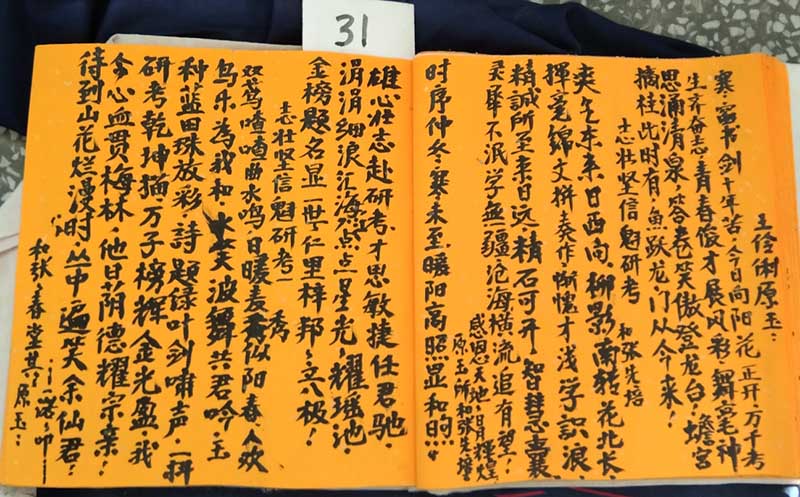 31
王修俐原玉：
寒窗书剑十年苦，今日向阳花正开，万千考
生齐奋志，青春俊才展风彩，舞毫神
思涌清泉，答卷笑傲登龙台！蟾宫
摘桂此时有，鱼跃龙门从今来！
志壮坚信魁研考 和张先培
爽乞东来日西向，柳影南转花北长，
挥毫锦文拼奏作，惭愧才浅学识浪，
精诚所至来日远，精石可开，智慧志襄，
灵犀不泯学无疆，沧海横流追有望！
感恩天地，日月辉煌
原玉所和张先培
时序仲冬寒未至，暖阳高照显和煦
雄心壮志赴研考，才思敏捷任君驰，
涓涓细浪汇海，点点星光，耀瑶池，
金榜题名显一世，仁里梓邦，立八极！
志壮坚信魁研考一
双莺喳喳曲水鸣，日暖麦秀似阳春，人欢
鸟乐为我和，天波舞共君吟，玉
种蓝田珠放彩，诗题绿叶剑啸声，一拼
研考乾坤犹，万子榜辉金光盈，我
念心血贯梅林，他日荫德耀宗亲！
待到山花烂漫时，丛中遍笑余仙君！
和张春堂其
原玉：